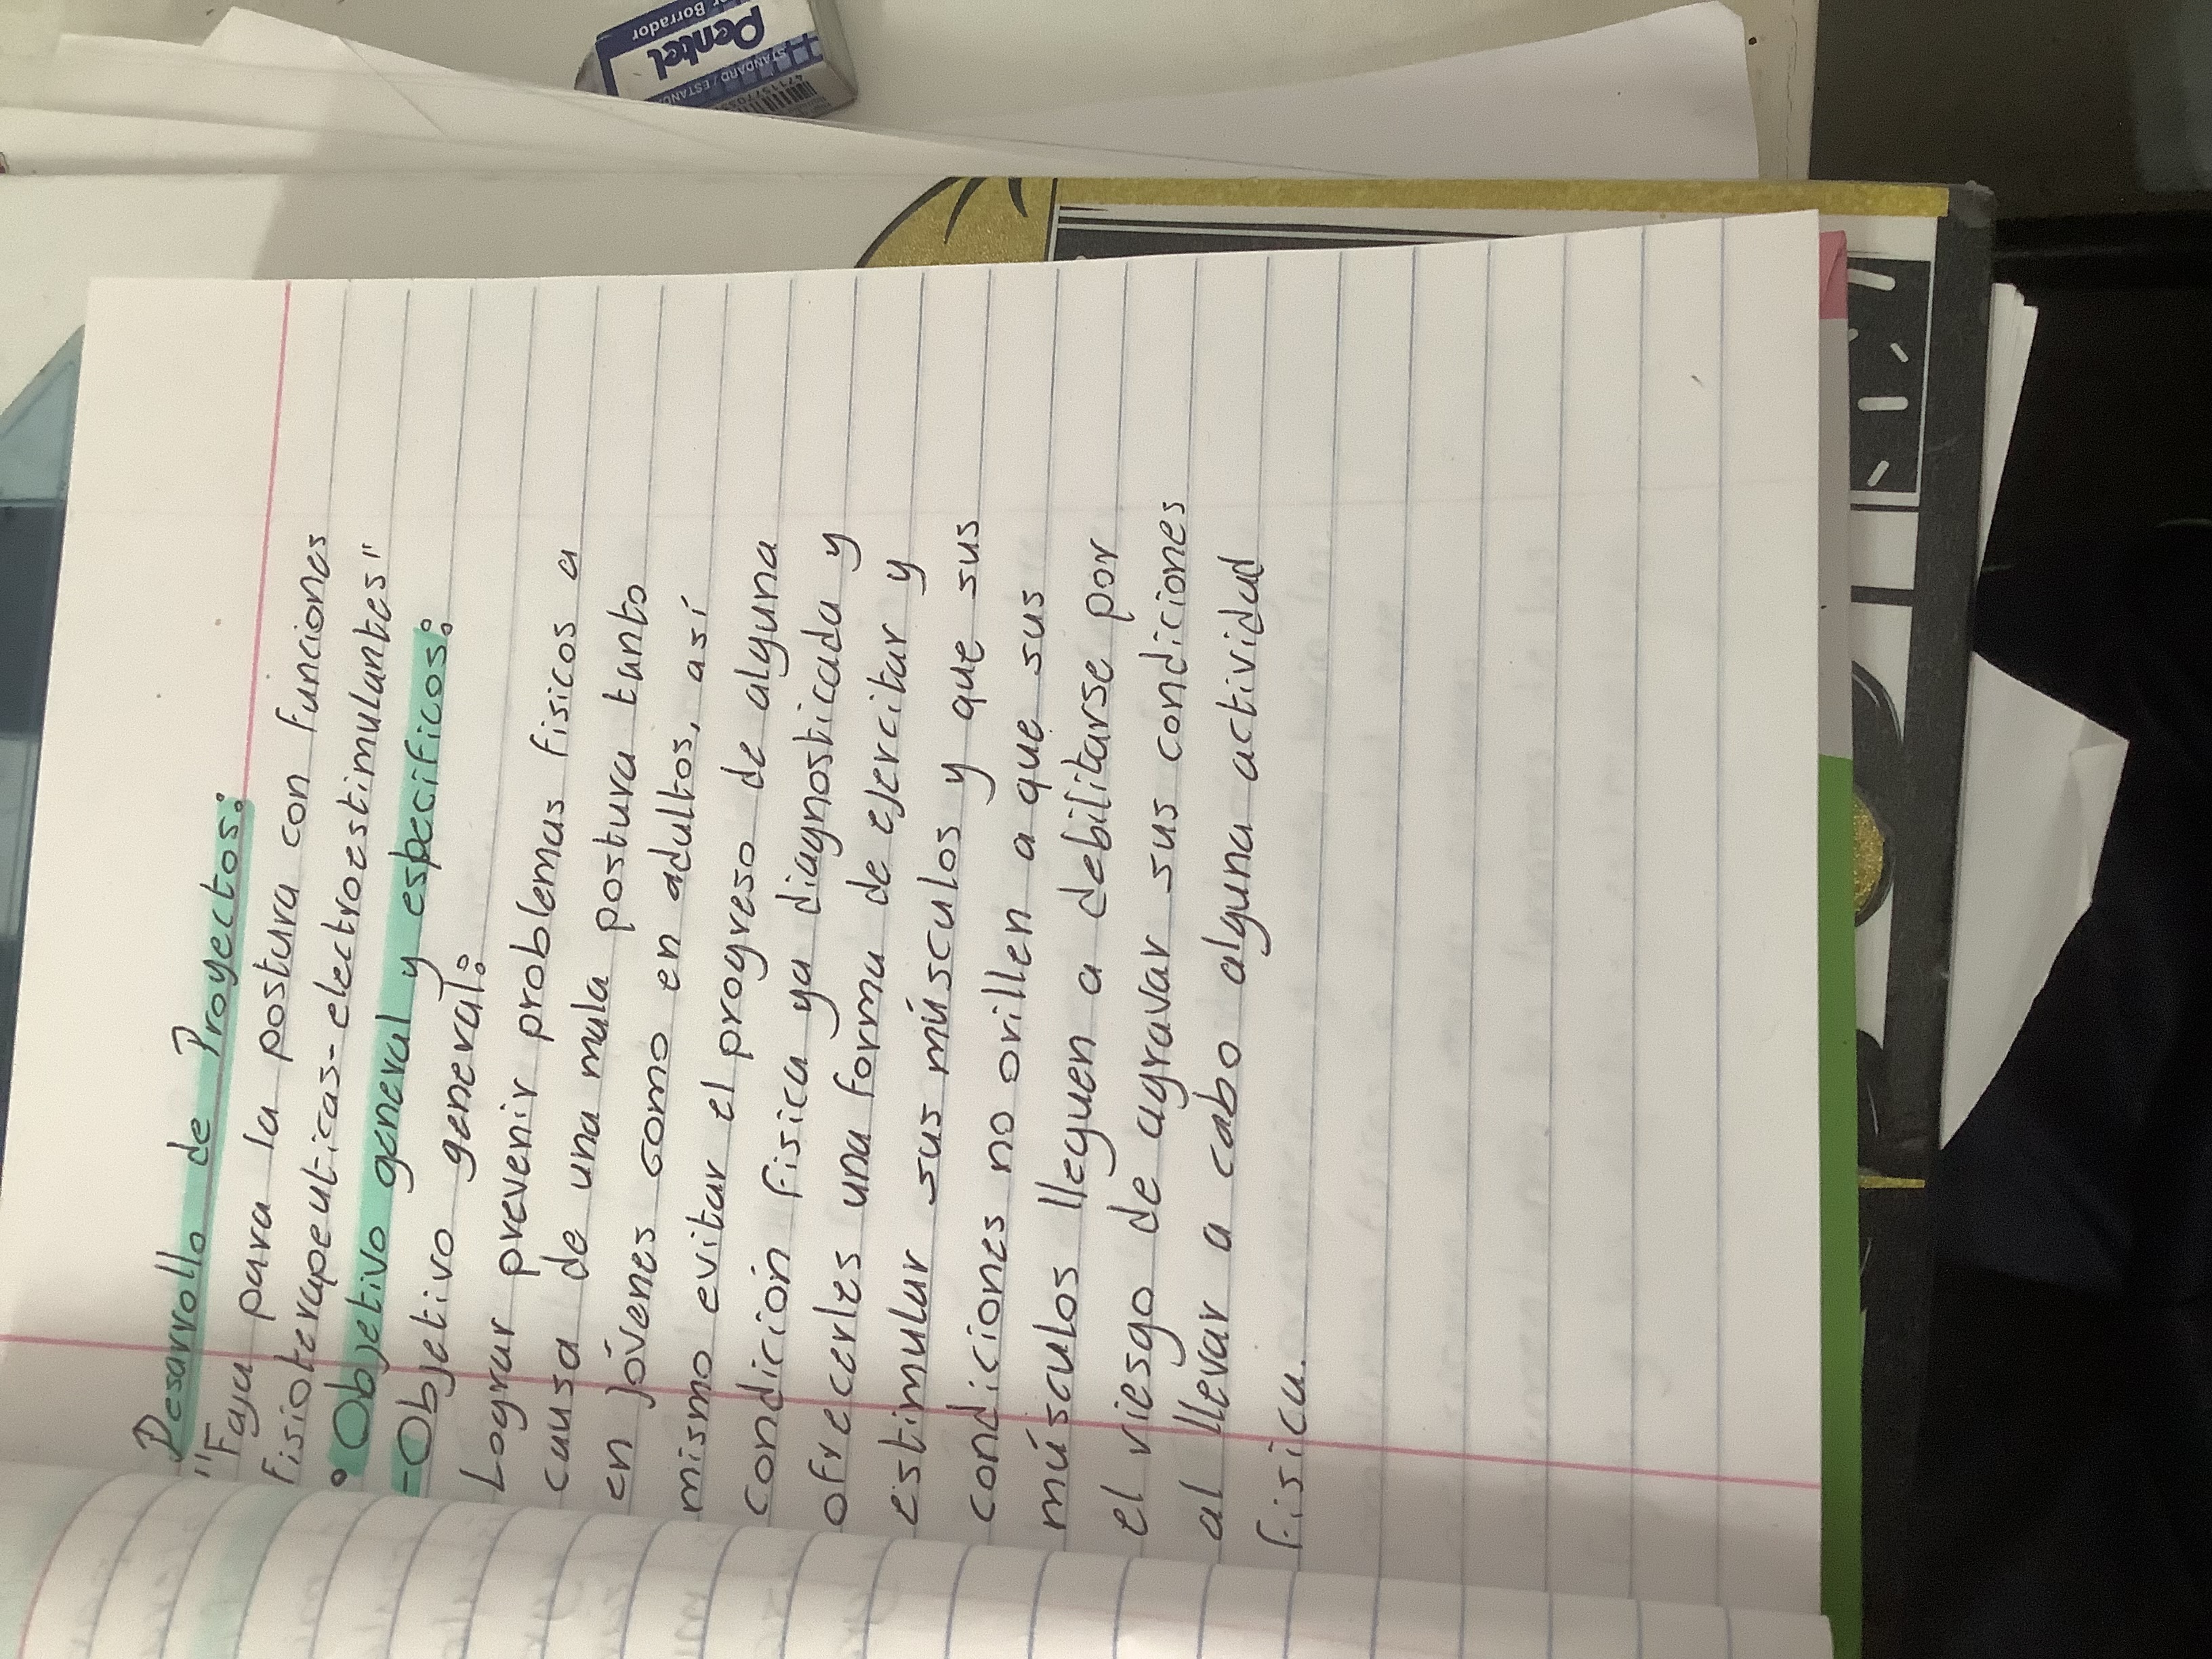 Desarrollo de Proyectos:
"Faja para la postura con funciones
fisioterapeuticas-electroestimulantes"
• Objetivo general y especificos:
-Objetivo general:
Lograr prevenir problemas fisicos a
causa de una mala postura tanto
en jóvenes como en adultos, así
mismo evitar el progreso de alguna
condición fisica ya diagnosticada y
ofrecerles una forma de ejercitar y
estimular sus músculos y que sus
condiciones no orillen a que sus
músculos lleguen a debilitarse por
el riesgo de agravar sus condiciones
al llevar a cabo alguna actividad
fisica.
Pentel
Borrador
STANDARD / ESTAND